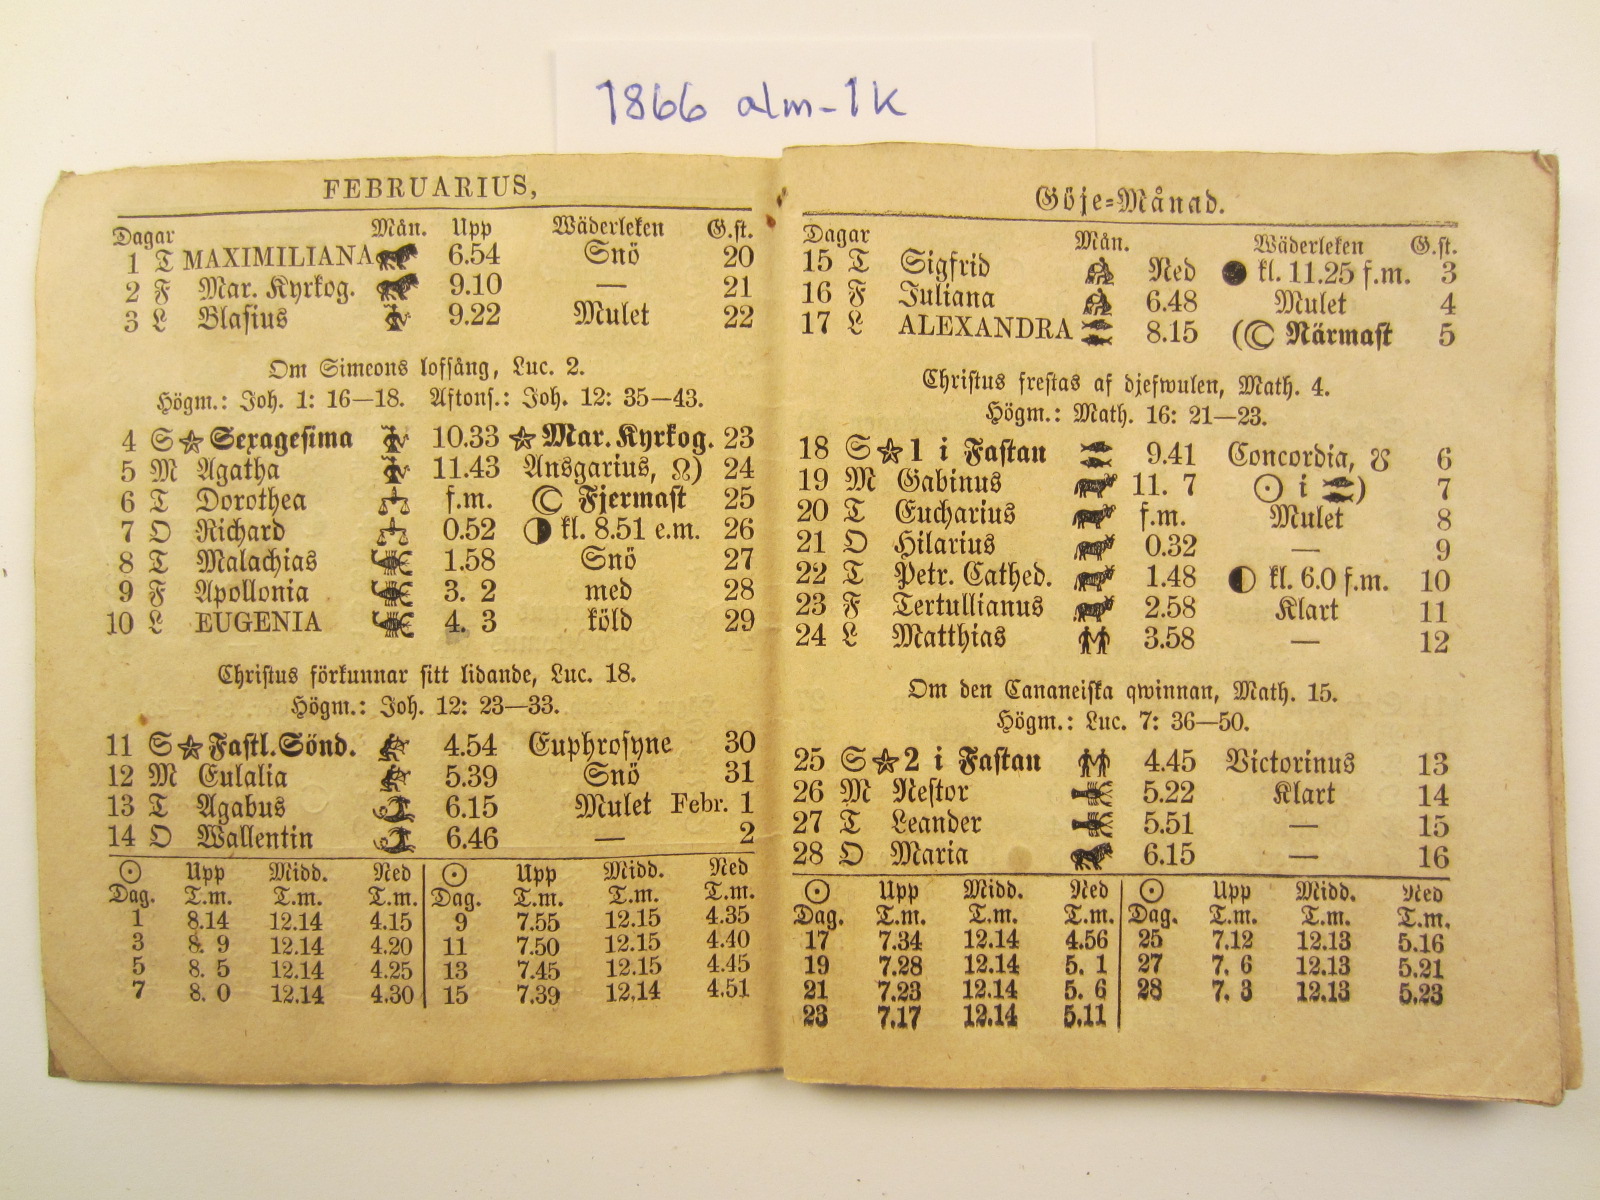 1866 alm-1k
FEBRUARIUS,
Dagar Mån. Upp Wäderleken G.st.
1 T MAXIMILIANA 6.54 Snö 20
2 F Mar. Kyrkog. 9.10 — 21
3 L Blasius 9.22 Mulet 22
Om Simeons loffång, Luc. 2.
Högm.: Joh. 1: 16—18. Aftons.: Joh. 12: 35—43.
4 S ☆ Sexagesima 10.33 ☆ Mar. Kyrkog. 23
5 M Agatha 11.43 Ansgarius, ☊) 24
6 T Dorothea f.m. ☾ Fjermast 25
7 O Richard 0.52 ◑ kl. 8.51 e.m. 26
8 T Malachias 1.58 Snö 27
9 F Apollonia 3. 2 med 28
10 L EUGENIA 4. 3 köld 29
Christus förkunnar sitt lidande, Luc. 18.
Högm.: Joh. 12: 23—33.
11 S ☆ Fastl.Sönd. 4.54 Euphrosyne 30
12 M Eulalia 5.39 Snö 31
13 T Agabus 6.15 Mulet Febr. 1
14 O Wallentin 6.46 — 2
☉ Upp Midd. Ned ☉ Upp Midd. Ned
Dag. T.m. T.m. T.m. Dag. T.m. T.m. T.m.
1 8.14 12.14 4.15 9 7.55 12.15 4.35
3 8. 9 12.14 4.20 11 7.50 12.15 4.40
5 8. 5 12.14 4.25 13 7.45 12.15 4.45
7 8. 0 12.14 4.30 15 7.39 12.14 4.51
Göje-Månad.
Dagar Mån. Wäderleken G.st.
15 T Sigfrid Ned ● kl. 11.25 f.m. 3
16 F Juliana 6.48 Mulet 4
17 L ALEXANDRA 8.15 (☾ Närmast 5
Christus frestas af djefwulen, Math. 4.
Högm.: Math. 16: 21—23.
18 S ☆ 1 i Fastan 9.41 Concordia, ☋ 6
19 M Gabinus 11. 7 ☉ i ♓) 7
20 T Eucharius f.m. Mulet 8
21 O Hilarius 0.32 — 9
22 T Petr. Cathed. 1.48 ◐ kl. 6.0 f.m. 10
23 F Tertullianus 2.58 Klart 11
24 L Matthias 3.58 — 12
Om den Cananeiska qwinnan, Math. 15.
Högm.: Luc. 7: 36—50.
25 S ☆ 2 i Fastan 4.45 Victorinus 13
26 M Nestor 5.22 Klart 14
27 T Leander 5.51 — 15
28 O Maria 6.15 — 16
☉ Upp Midd. Ned ☉ Upp Midd. Ned
Dag. T.m. T.m. T.m. Dag. T.m. T.m. T.m.
17 7.34 12.14 4.56 25 7.12 12.13 5.16
19 7.28 12.14 5. 1 27 7. 6 12.13 5.21
21 7.23 12.14 5. 6 28 7. 3 12.13 5.23
23 7.17 12.14 5.11